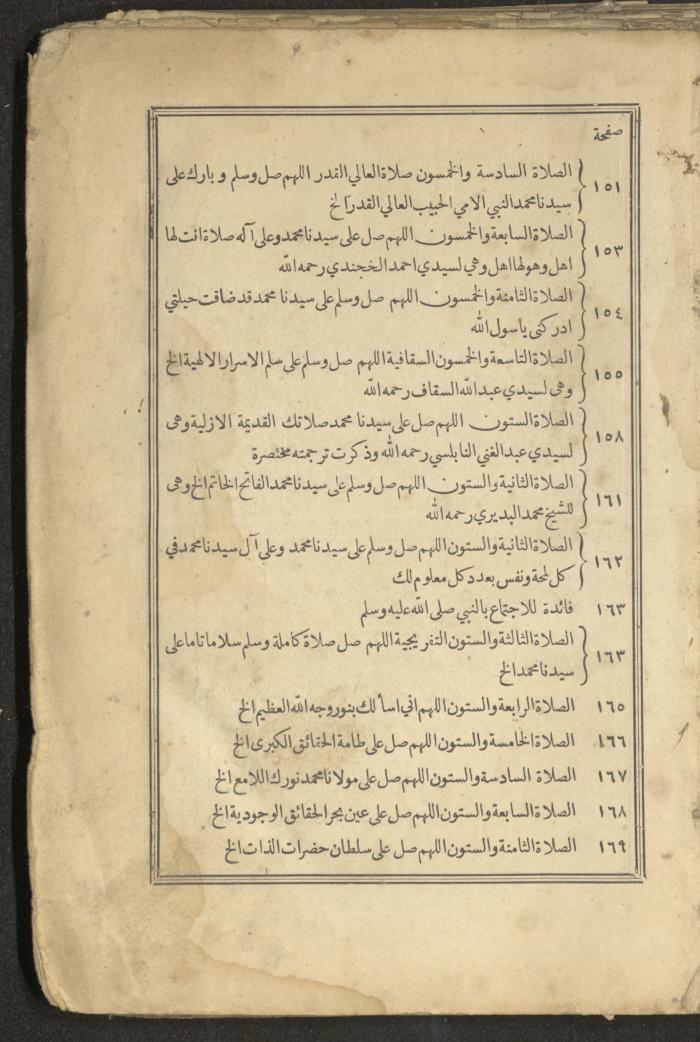 صفحة
١٥١ الصلاة السادسة والخمسون صلاة العالي القدر اللهم صل وسلم و بارك على
سيدنا محمد النبي الامي الحبيب العالي القدر الخ
١٥٣ الصلاة السابعة والخمسون اللهم صل على سيدنا محمد وعلى آله صلاة انت لها
اهل وهو لها اهل وهي لسيدي احمد الخجندي رحمه الله
١٥٤ الصلاة الثامنة والخمسون اللهم صل وسلم على سيدنا محمد قد ضاقت حيلتي
ادركنى ياسول الله
١٥٥ الصلاة التاسعة والخمسون السقافية اللهم صل وسلم على سلم الاسرار الالهية الخ
وهى لسيدي عبد الله السقاف رحمه الله
١٥٨ الصلاة الستون اللهم صل على سيدنا محمد صلاتك القديمة الازلية وهى
لسيدي عبد الغني النابلسي رحمه الله وذكرت ترجمته مختصرة
١٦١ الصلاة الثانية والستون اللهم صل وسلم على سيدنا محمد الفاتح الخاتم الخ وهى
للشيخ محمد البديري رحمه الله
١٦٢ الصلاة الثانية والستون اللهم صل وسلم على سيدنا محمد وعلى آل سيدنا محمد في
كل لمحة ونفس بعدد كل معلوم لك
١٦٣ فائدة للاجتماع بالنبي صلى الله عليه وسلم
١٦٣ الصلاة الثالثة والستون التفريجية اللهم صل صلاة كاملة وسلم سلاما تاما على
سيدنا محمد الخ
١٦٥ الصلاة الرابعة والستون اللهم اني اسألك بنور وجه الله العظيم الخ
١٦٦ الصلاة الخامسة والستون اللهم صل على طامة الحقائق الكبرى الخ
١٦٧ الصلاة السادسة والستون اللهم صل على مولانا محمد نورك اللامع الخ
١٦٨ الصلاة السابعة والستون اللهم صل على عين بحر الحقائق الوجودية الخ
١٦٩ الصلاة الثامنة والستون اللهم صل على سلطان حضرات الذات الخ